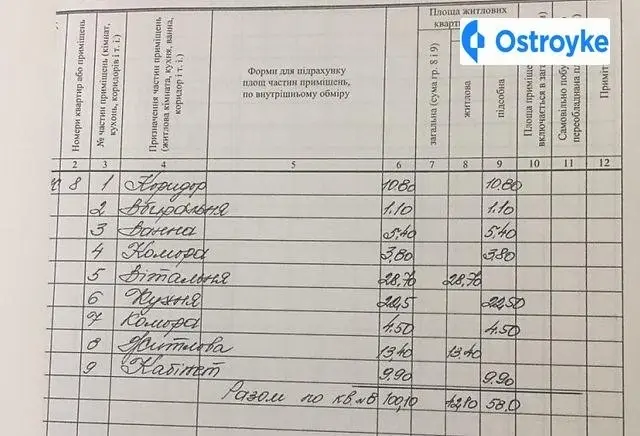 Ostroyke
Номери квартир або приміщень
№ частин приміщень (кімнат,
кухонь, коридорів і т. і.)
Призначення частин приміщень
(житлова кімната, кухня, ванна,
коридор і т. і.)
Форми для підрахунку
площ частин приміщень,
по внутрішньому обміру
Площа житлових
загальна (сума гр. 8 і 9)
житлова
підсобна
Площа приміщен
включається в зага
Самовільно побу
переобладнана пл
Приміт
2 3 4 5 6 7 8 9 10 11 12
8 1 Коридор 10.80 10.80
2 Вбиральня 1.10 1.10
3 Ванна 5,40 5.40
4 Комора 3,80 3,80
5 Вітальня 28,70 28,70
6 Кухня 22,5 22,50
7 Комора 4.50 4.50
8 Житлова 13,40 13,40
9 Кабінет 9.90 9.90
Разом по кв.№8 100,10 42,10 58,0